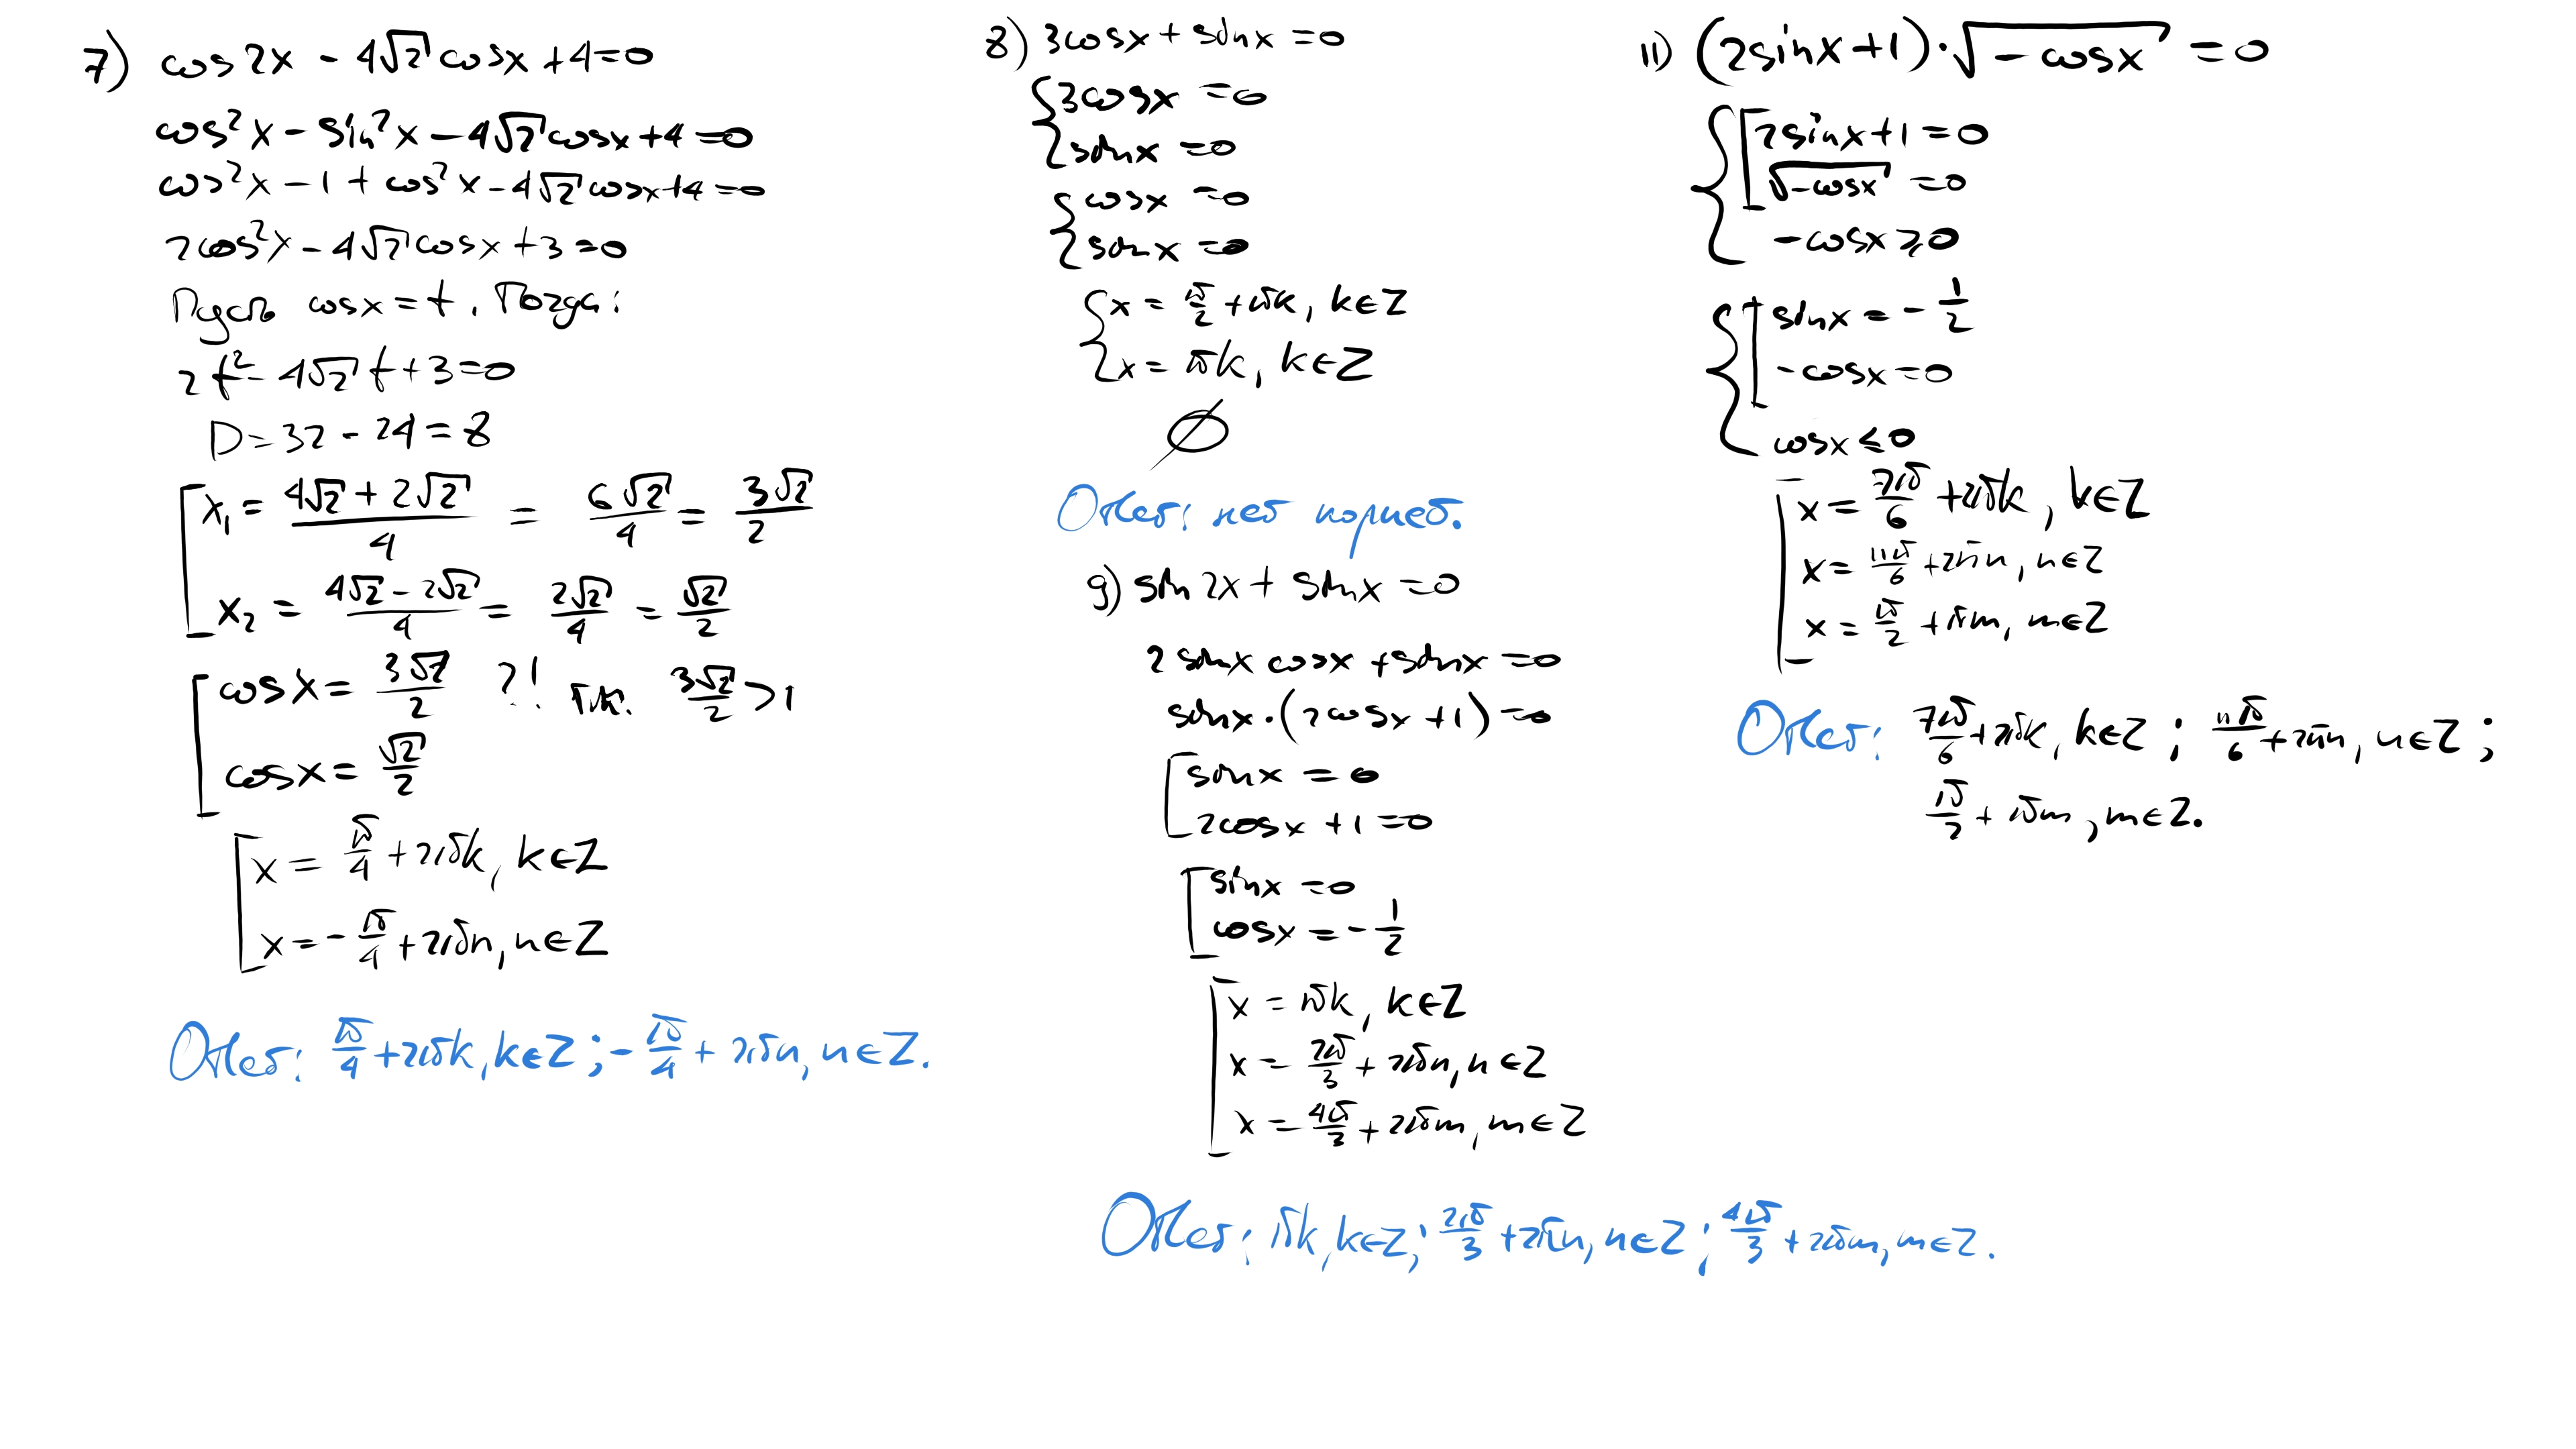 7) cos 2x - 4√2 cosx + 4 = 0
cos²x - sin²x - 4√2 cosx + 4 = 0
cos²x - 1 + cos²x - 4√2 cosx + 4 = 0
2cos²x - 4√2 cosx + 3 = 0
Пусть cosx = t. Тогда:
2t² - 4√2 t + 3 = 0
D = 32 - 24 = 8
[ x₁ = (4√2 + 2√2)/4 = 6√2/4 = 3√2/2
x₂ = (4√2 - 2√2)/4 = 2√2/4 = √2/2
[ cosx = 3√2/2 ?! т.к. 3√2/2 > 1
cosx = √2/2
[ x = π/4 + 2πk, k∈Z
x = -π/4 + 2πn, n∈Z
Ответ: π/4 + 2πk, k∈Z; -π/4 + 2πn, n∈Z.
8) 3cosx + sinx = 0
{ 3cosx = 0
sinx = 0
{ cosx = 0
sinx = 0
{ x = π/2 + πk, k∈Z
x = πk, k∈Z
∅
Ответ: нет корней.
9) sin 2x + sinx = 0
2 sinx cosx + sinx = 0
sinx · (2cosx + 1) = 0
[ sinx = 0
2cosx + 1 = 0
[ sinx = 0
cosx = -1/2
[ x = πk, k∈Z
x = 2π/3 + 2πn, n∈Z
x = 4π/3 + 2πm, m∈Z
Ответ: πk, k∈Z; 2π/3 + 2πn, n∈Z; 4π/3 + 2πm, m∈Z.
11) (2sinx + 1) · √(-cosx) = 0
{ [ 2sinx + 1 = 0
√(-cosx) = 0
-cosx ⩾ 0
{ [ sinx = -1/2
-cosx = 0
cosx ≤ 0
[ x = 7π/6 + 2πk, k∈Z
x = 11π/6 + 2πn, n∈Z
x = π/2 + πm, m∈Z
Ответ: 7π/6 + 2πk, k∈Z; 11π/6 + 2πn, n∈Z;
π/2 + πm, m∈Z.